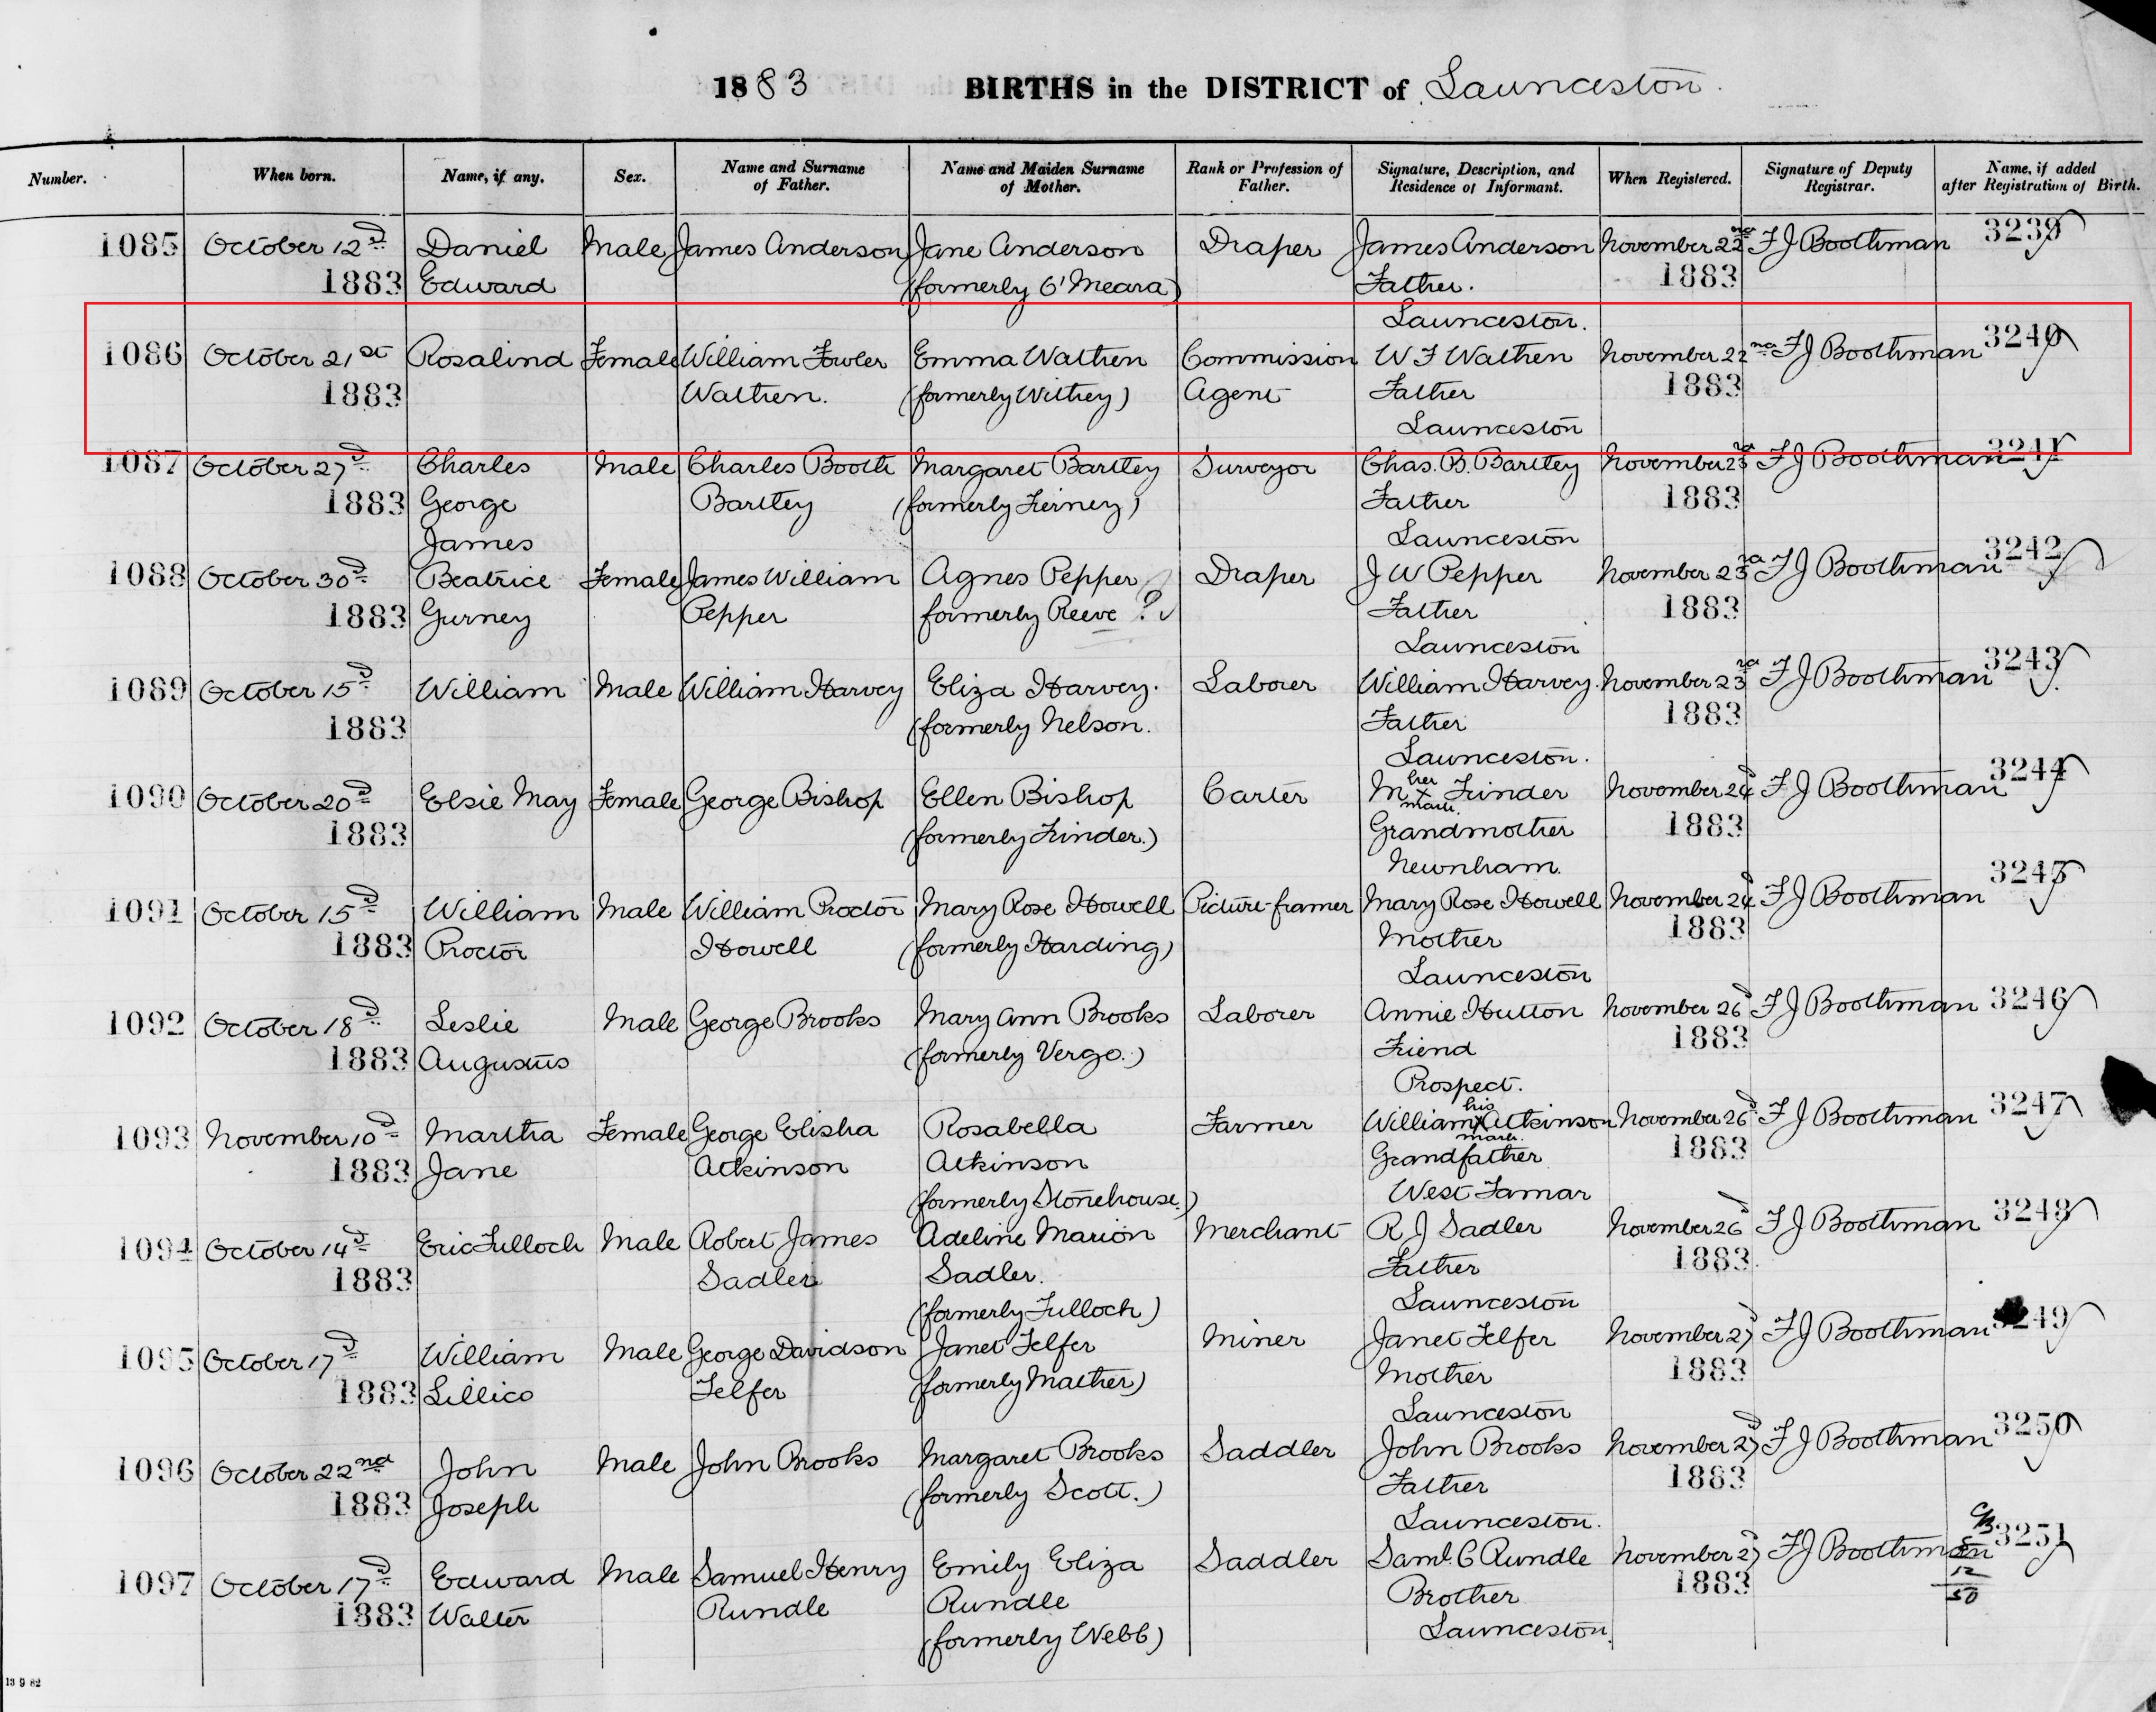 1883 BIRTHS in the DISTRICT of Launceston.
Number. When born. Name, if any. Sex. Name and Surname of Father. Name and Maiden Surname of Mother. Rank or Profession of Father. Signature, Description, and Residence of Informant. When Registered. Signature of Deputy Registrar. Name, if added after Registration of Birth.
1085 October 12d Daniel Male James Anderson Jane Anderson Draper James Anderson November 22nd F J Boothman 3239
1883 Edward (formerly O'Meara) Father. 1883
Launceston.
1086 October 21st Rosalind Female William Fowler Emma Wathen Commission W F Wathen November 22nd F J Boothman 3240
1883 Wathen. (formerly Withey) Agent Father 1883
Launceston
1087 October 27d Charles Male Charles Booth Margaret Bartley Surveyor Chas. B. Bartley November 23rd F J Boothman 3241
1883 George Bartley (formerly Tierney) Father 1883
James Launceston
1088 October 30d Beatrice Female James William Agnes Pepper Draper J W Pepper November 23rd F J Boothman 3242
1883 Gurney Pepper formerly Reeve ? Father 1883
Launceston
1089 October 15d William Male William Harvey Eliza Harvey. Laborer William Harvey. November 23rd F J Boothman 3243
1883 (formerly Nelson. Father 1883
Launceston.
1090 October 20d Elsie May Female George Bishop Ellen Bishop Carter M her x mark Trinder November 24d F J Boothman 3244
1883 (formerly Trinder.) Grandmother 1883
Newnham.
1091 October 15d William Male William Proctor Mary Rose Howell Picture-framer Mary Rose Howell November 24d F J Boothman 3245
1883 Proctor Howell (formerly Harding) Mother 1883
Launceston
1092 October 18d Leslie Male George Brooks Mary Ann Brooks Laborer Annie Hutton November 26d F J Boothman 3246
1883 Augustus (formerly Vergo.) Friend 1883
Prospect.
1093 November 10d Martha Female George Elisha Rosabella Farmer William his x mark Atkinson November 26d F J Boothman 3247
1883 Jane Atkinson Atkinson Grandfather 1883
(formerly Stonehouse.) West Tamar
1094 October 14d Eric Tulloch Male Robert James Adeline Marion Merchant R J Sadler November 26d F J Boothman 3248
1883 Sadler Sadler. Father 1883
(formerly Tulloch) Launceston
1095 October 17d William Male George Davidson Janet Telfer Miner Janet Telfer November 27d F J Boothman 3249
1883 Lillico Telfer (formerly Mather) Mother 1883
Launceston
1096 October 22nd John Male John Brooks Margaret Brooks Saddler John Brooks November 27d F J Boothman 3250
1883 Joseph (formerly Scott.) Father 1883
Launceston.
1097 October 17d Edward Male Samuel Henry Emily Eliza Saddler Saml. C Rundle November 27d F J Boothman 3251
1883 Walter Rundle Rundle Brother 1883
(formerly Webb) Launceston.
12
50
13 9 82